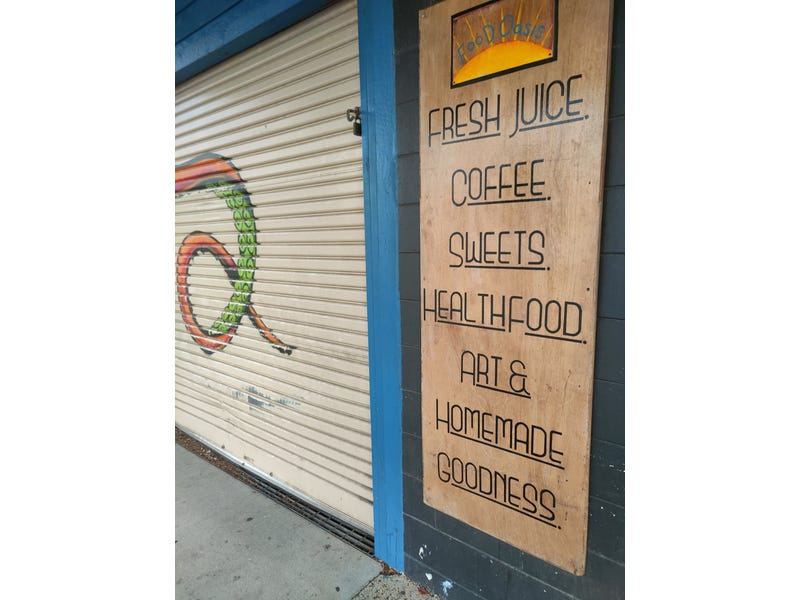 FOOD OASIS
FRESH JUICE.
COFFEE.
SWEETS.
HEALTHFOOD.
ART &
HOMEMADE
GOODNESS.